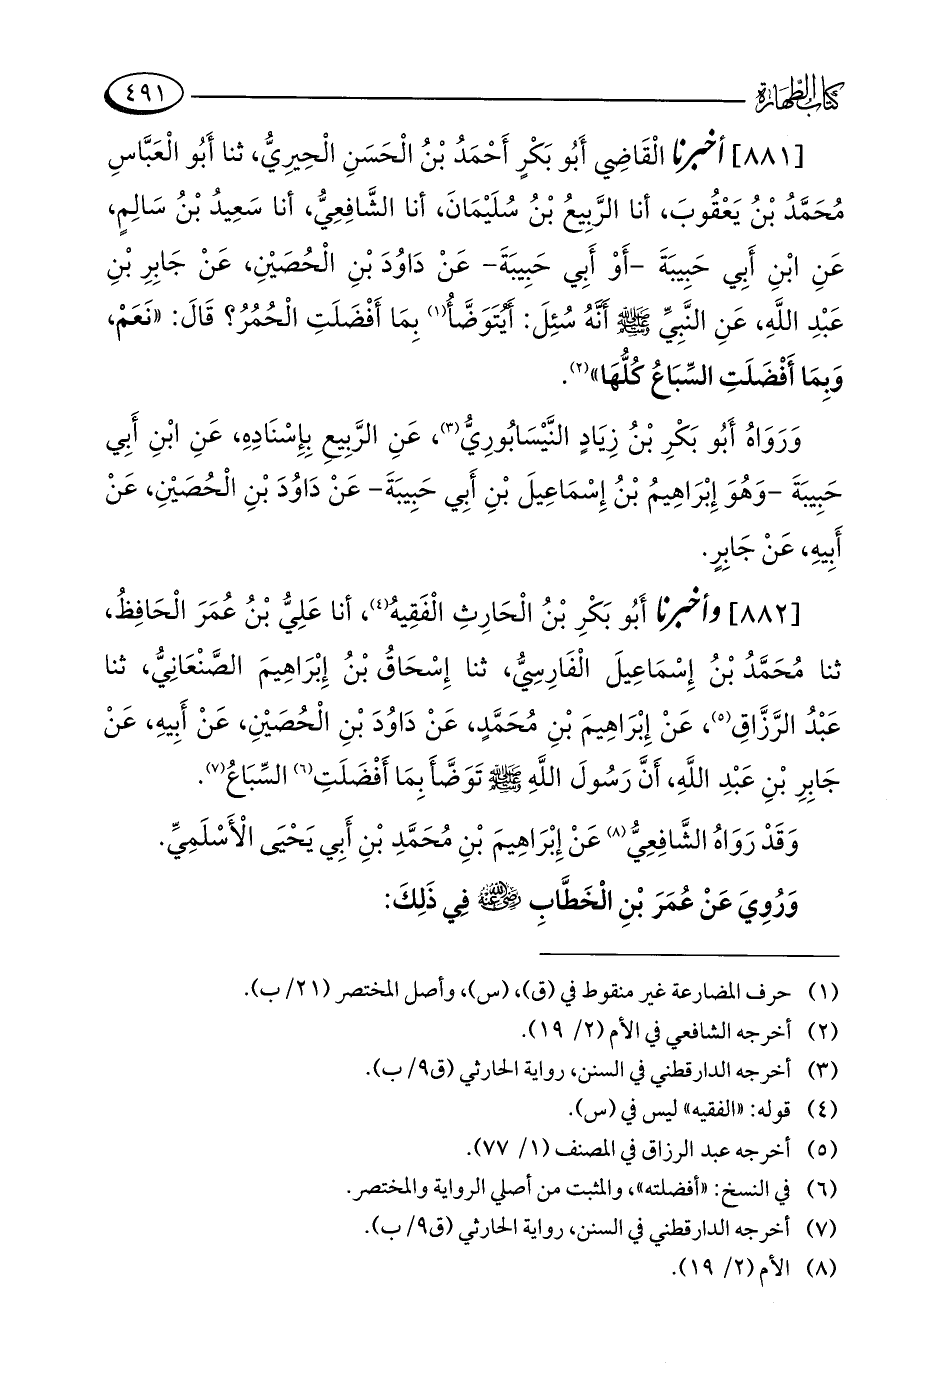 كتاب الطهارة ٤٩١
[٨٨١] أخبرنا الْقَاضِي أَبُو بَكْرٍ أَحْمَدُ بْنُ الْحَسَنِ الْحِيرِيُّ، ثنا أَبُو الْعَبَّاسِ
مُحَمَّدُ بْنُ يَعْقُوبَ، أنا الرَّبِيعُ بْنُ سُلَيْمَانَ، أنا الشَّافِعِيُّ، أنا سَعِيدُ بْنُ سَالِمٍ،
عَنِ ابْنِ أَبِي حَبِيبَةَ -أَوْ أَبِي حَبِيبَةَ- عَنْ دَاوُدَ بْنِ الْحُصَيْنِ، عَنْ جَابِرِ بْنِ
عَبْدِ اللَّهِ، عَنِ النَّبِيِّ ﷺ أَنَّهُ سُئِلَ: أَيُتَوَضَّأُ(١) بِمَا أَفْضَلَتِ الْحُمُرُ؟ قَالَ: «نَعَمْ،
وَبِمَا أَفْضَلَتِ السِّبَاعُ كُلُّهَا»(٢).
وَرَوَاهُ أَبُو بَكْرِ بْنُ زِيَادٍ النَّيْسَابُورِيُّ(٣)، عَنِ الرَّبِيعِ بِإِسْنَادِهِ، عَنِ ابْنِ أَبِي
حَبِيبَةَ -وَهُوَ إِبْرَاهِيمُ بْنُ إِسْمَاعِيلَ بْنِ أَبِي حَبِيبَةَ- عَنْ دَاوُدَ بْنِ الْحُصَيْنِ، عَنْ
أَبِيهِ، عَنْ جَابِرٍ.
[٨٨٢] وأخبرنا أَبُو بَكْرِ بْنُ الْحَارِثِ الْفَقِيهُ(٤)، أنا عَلِيُّ بْنُ عُمَرَ الْحَافِظُ،
ثنا مُحَمَّدُ بْنُ إِسْمَاعِيلَ الْفَارِسِيُّ، ثنا إِسْحَاقُ بْنُ إِبْرَاهِيمَ الصَّنْعَانِيُّ، ثنا
عَبْدُ الرَّزَّاقِ(٥)، عَنْ إِبْرَاهِيمَ بْنِ مُحَمَّدٍ، عَنْ دَاوُدَ بْنِ الْحُصَيْنِ، عَنْ أَبِيهِ، عَنْ
جَابِرِ بْنِ عَبْدِ اللَّهِ، أَنَّ رَسُولَ اللَّهِ ﷺ تَوَضَّأَ بِمَا أَفْضَلَتِ(٦) السِّبَاعُ(٧).
وَقَدْ رَوَاهُ الشَّافِعِيُّ(٨) عَنْ إِبْرَاهِيمَ بْنِ مُحَمَّدِ بْنِ أَبِي يَحْيَى الْأَسْلَمِيِّ.
وَرُوِيَ عَنْ عُمَرَ بْنِ الْخَطَّابِ رضي الله عنه فِي ذَلِكَ:
(١) حرف المضارعة غير منقوط في (ق)، (س)، وأصل المختصر (٢١/ ب).
(٢) أخرجه الشافعي في الأم (٢/ ١٩).
(٣) أخرجه الدارقطني في السنن، رواية الحارثي (ق٩/ ب).
(٤) قوله: «الفقيه» ليس في (س).
(٥) أخرجه عبد الرزاق في المصنف (١/ ٧٧).
(٦) في النسخ: «أفضلته»، والمثبت من أصلي الرواية والمختصر.
(٧) أخرجه الدارقطني في السنن، رواية الحارثي (ق٩/ ب).
(٨) الأم (٢/ ١٩).